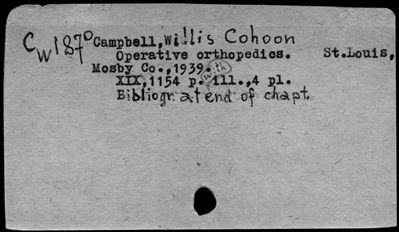 CW187° Campbell, Willis Cohoon
Operative orthopedics. St.Louis,
Mosby Co.,1939.
XIX,1154 p. with ill.,4 pl.
Bibliogr. at end of chapt